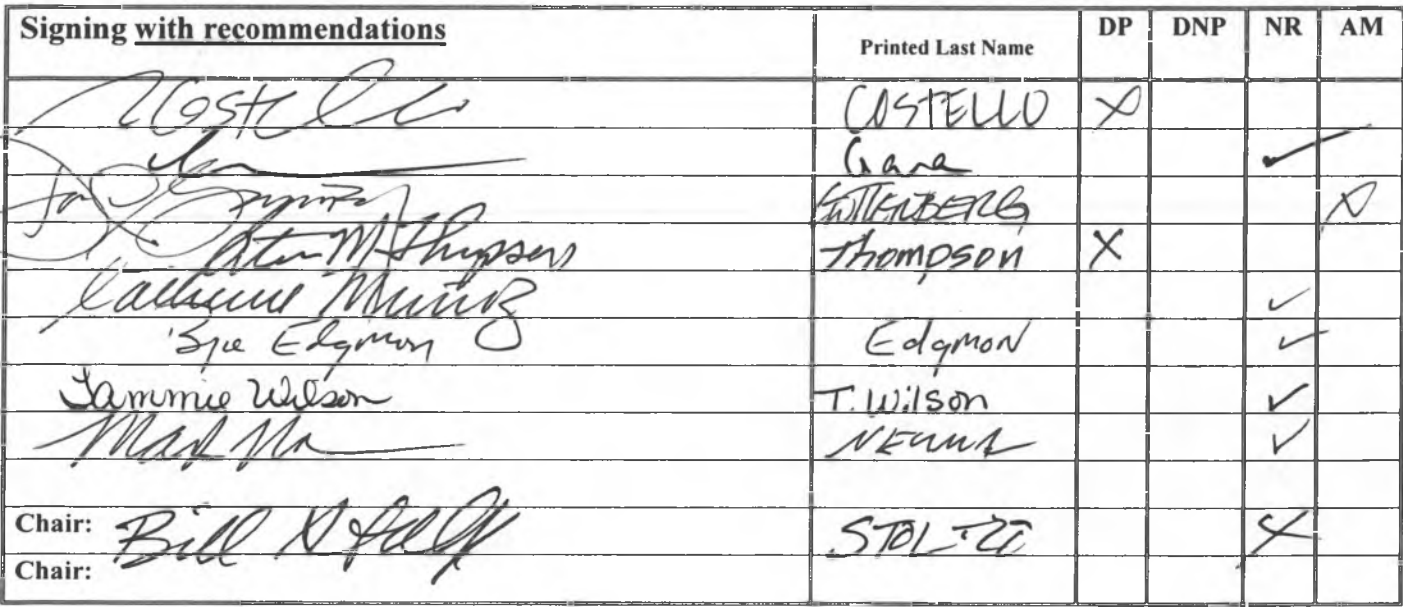 Signing with recommendations Printed Last Name DP DNP NR AM
Costello COSTELLO X
Gara ✓
GUTTENBERG X
Thompson Thompson X
Munoz ✓
Edgmon Edgmon ✓
Tammie Wilson T. Wilson ✓
Mark ✓
Chair: Bill STOLTZE X
Chair: